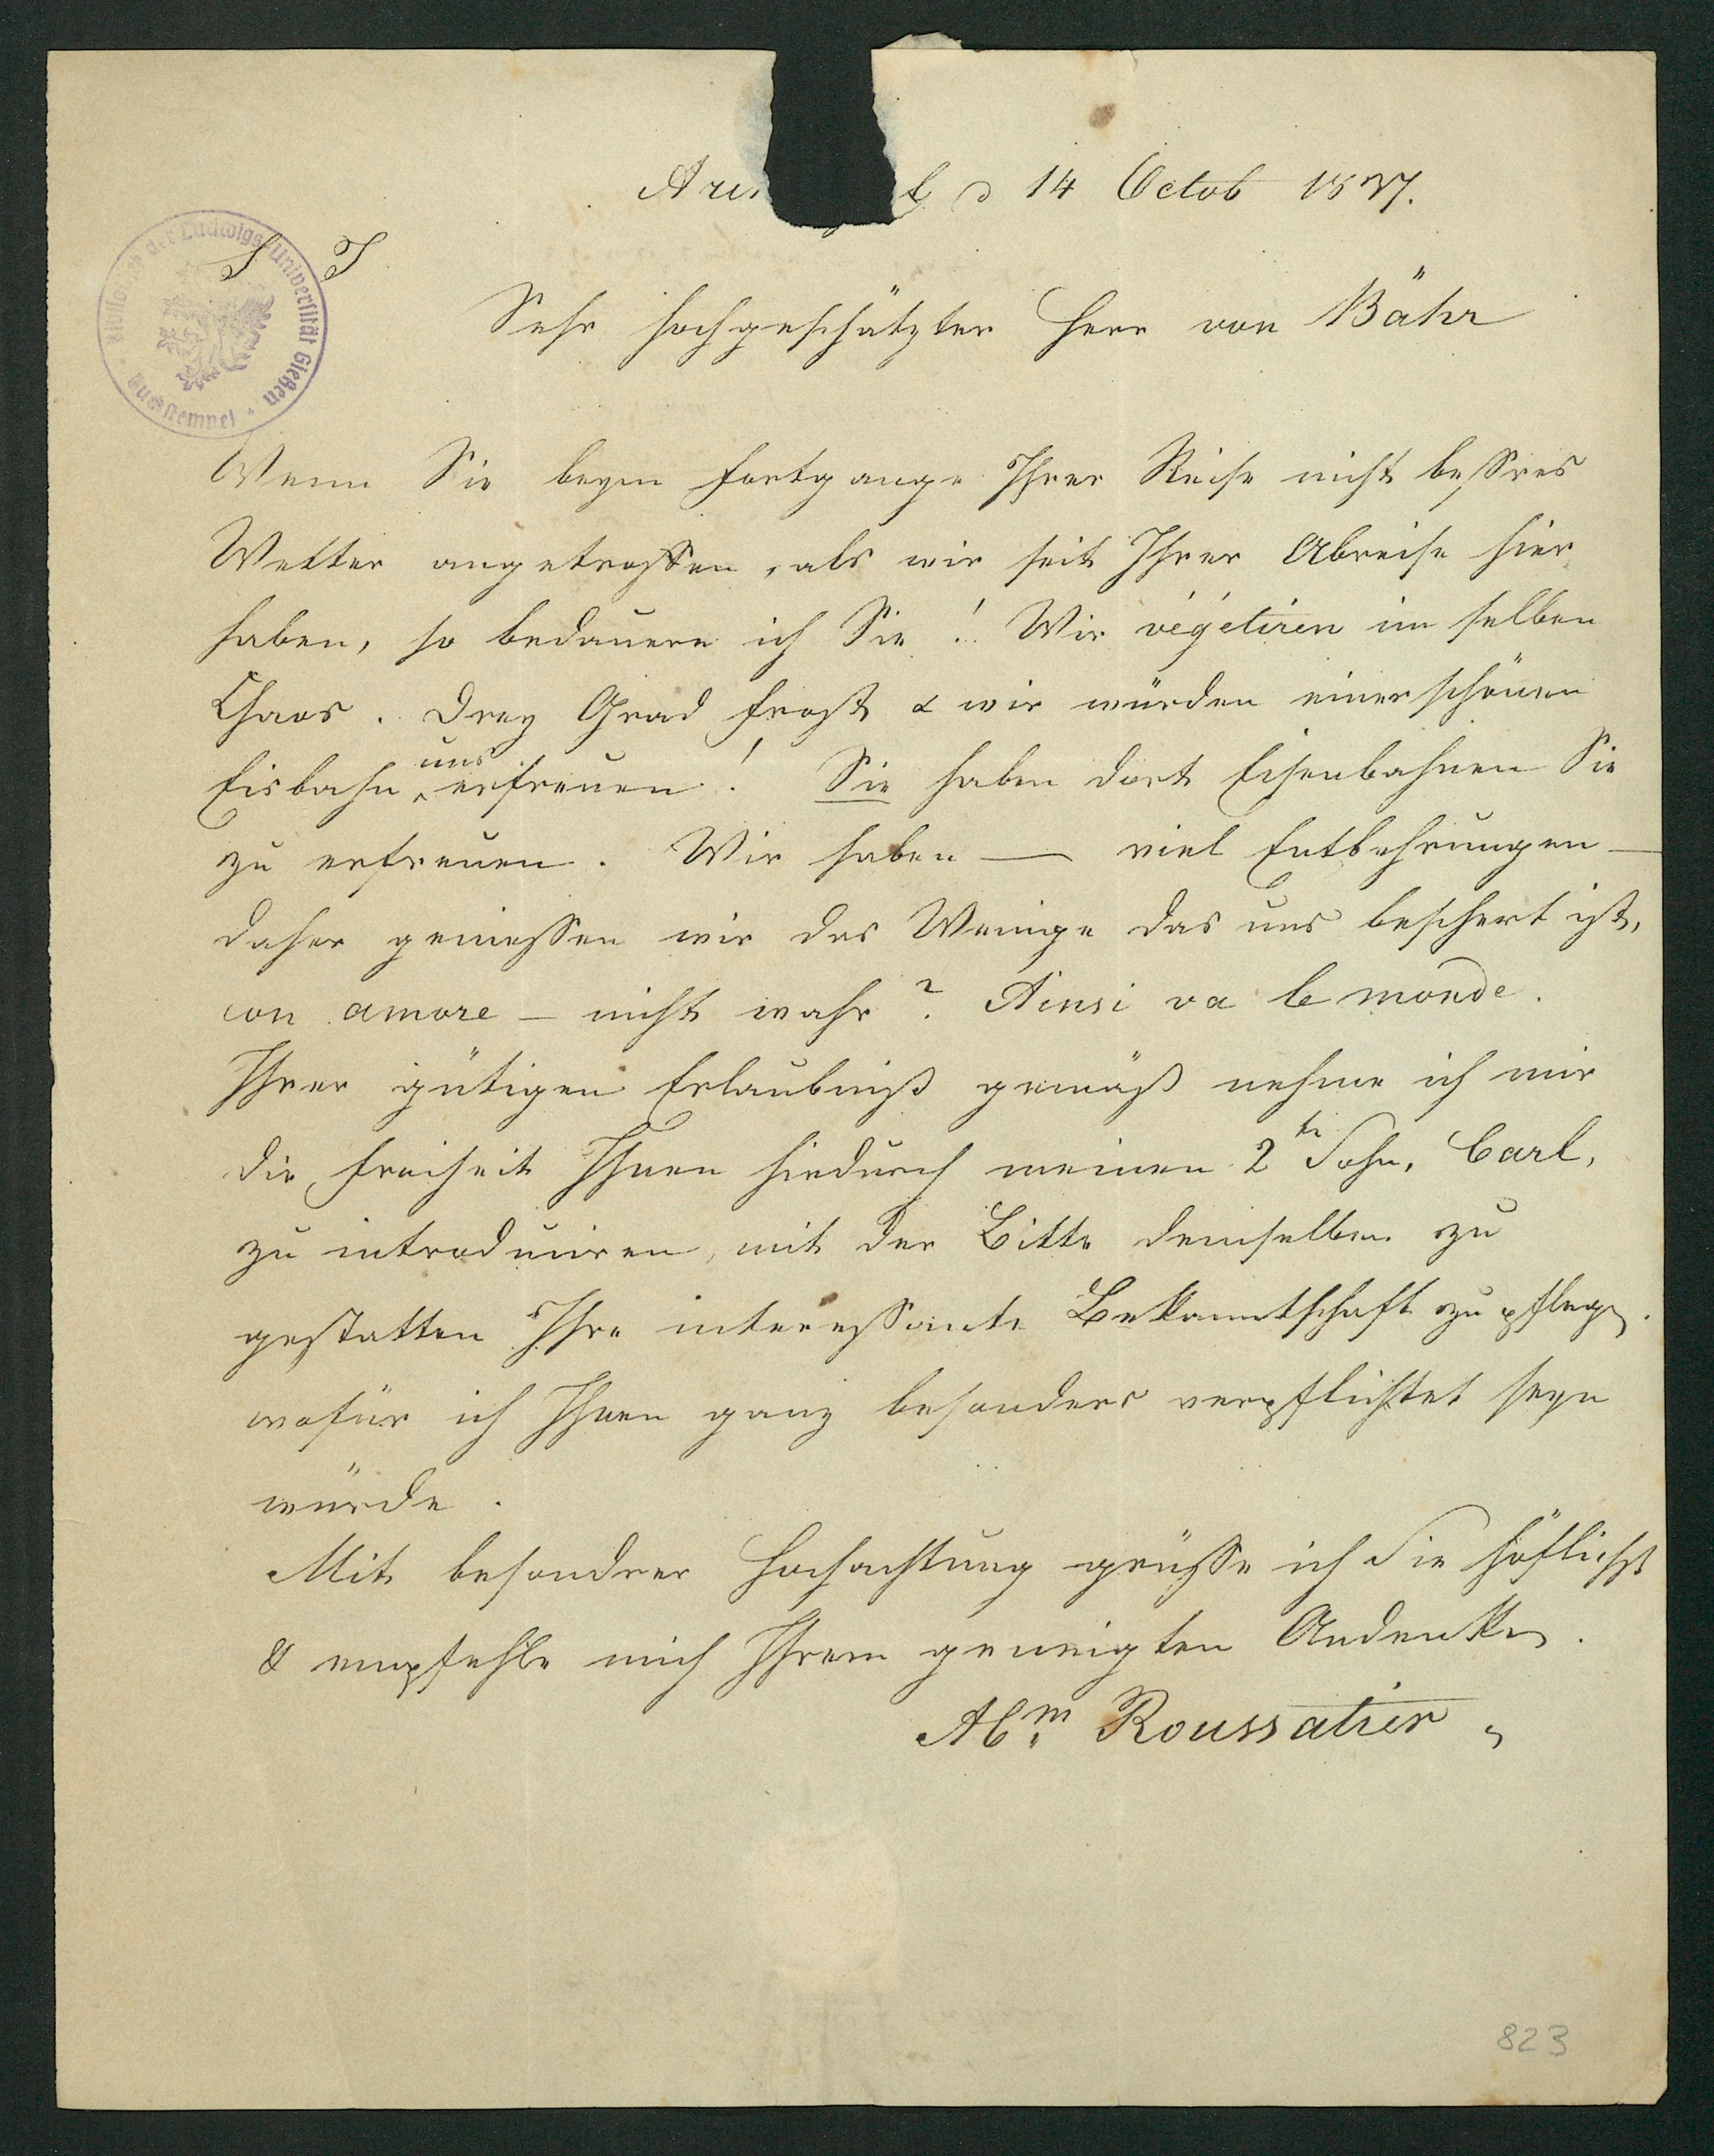 Ar l d 14 Octob 1837.
S T
Sehr hochgeschätzter Herr von Bähr
Wenn Sie beym Fortgange Ihrer Reise nicht beßres
Wetter angetroffen, als wir seit Ihrer Abreise hier
haben, so bedauere ich Sie! Wir végétiren im selben
Chaos. Drey Grad Frost & wir würden einer schönen
Eisbahn uns erfreuen! Sie haben dort Eisenbahnen Sie
zu erfreuen. Wir haben — viel Entbehrungen —
daher geniessen wir das Wenige das uns beschert ist,
con amore — nicht wahr? Ainsi va le monde.
Ihrer gütigen Erlaubniß gemäß nehme ich mir
die Freiheit Ihnen hiedurch meinen 2te Sohn, Carl,
zu introduciren, mit der Bitte demselben zu
gestatten Ihre interessante Bekanntschaft zu pflegen.
wofür ich Ihnen ganz besonders verpflichtet seyn
würde.
Mit besondrer Hochachtung grüsse ich Sie höflichst
& empfehle mich Ihrem geneigten Andenken.
Abm Roussatier
Bibliothek der Ludwigs-Universität Gießen
Tauschstempel
823